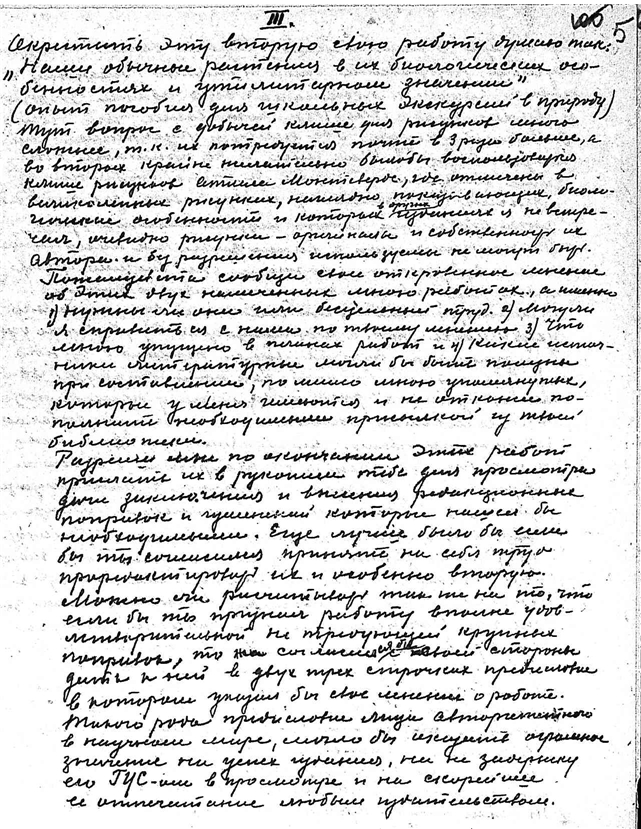 III.
106 5
Окрестить эту вторую свою работу думаю так:
„Наши обычные растения в их биологических осо-
бенностях и утилитарном значении"
(опыт пособия для школьных экскурсий в природу)
Тут вопрос с добычей клише для рисунков много
сложнее, т.к. их потребуется почти в 3 раза больше, а
во вторых крайне желательно было бы воспользоваться
клише рисунков атласа Монтеверде, где отмечены в
великолепных рисунках, наглядно показывающих, биоло-
гические особенности и которых в других изданиях я не встре-
чал, очевидно рисунки – оригиналы и собственность их
автора и без разрешения использованы не могут быть.
Пожалуйста сообщи свое откровенное мнение
об этих двух намеченных мною работах, а именно
1) нужны ли они или бесцельный труд. 2) Могу ли
я справиться с ними по твоему мнению 3) Что
мною упущено в планах работ и 4) Какие источ-
ники литературные могли бы быть полезны
при составлении, помимо мною упомянутых,
которые у меня имеются и не откажи по-
полнить необходимыми присылкой из твоей
библиотеки.
Разреши мне по окончании этих работ
прислать их в рукописи тебе для просмотра
дачи заключения и внесения редакционных
поправок и изменений которые нашел бы
необходимыми. Еще лучше было бы если
бы ты согласился принять на себя труд
проредактировать их и особенно вторую.
Можно ли рассчитывать так же на то, что
если бы ты признал работу вполне удов-
летворительной не требующей крупных
поправок, то согласился бы с своей стороны
дать к ней в двух трех строчках предисловие
в котором указал бы свое мнение о работе.
Такого рода предисловие лица авторитетного
в научном мире, могло бы оказать огромное
значение на успех издания, на не задержку
его ГУС-ом в просмотре и на скорейшее
ее отпечатание любым издательством.